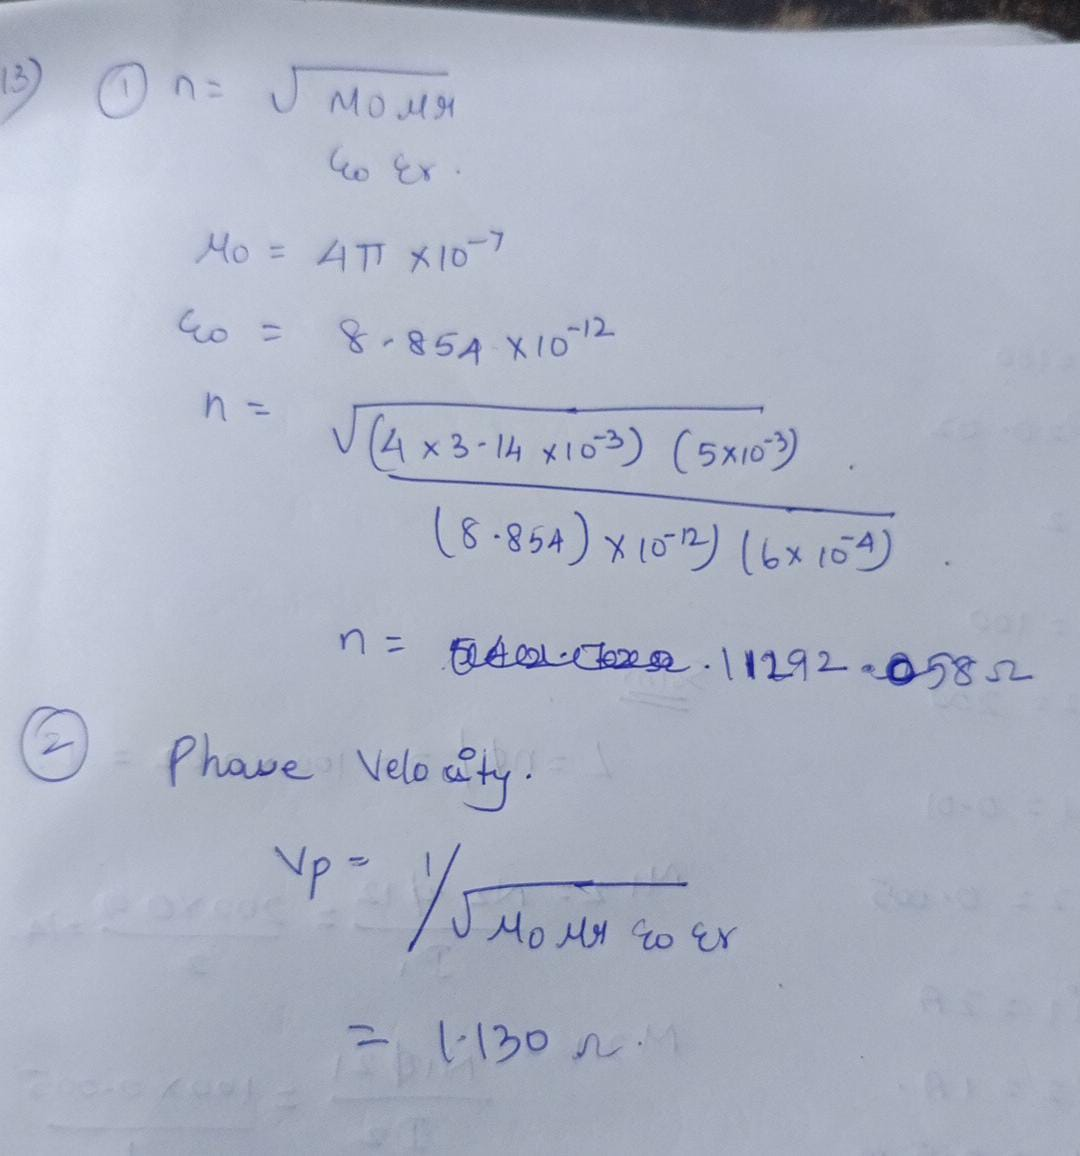 13) ① n = √ μ0 μr
ε0 εr.
μ0 = 4π × 10⁻⁷
ε0 = 8.854 × 10⁻¹²
n = √(4 × 3.14 × 10⁻³) (5×10⁻³) .
(8.854) × 10⁻¹²) (6 × 10⁻⁴) .
n = . 11292.058 Ω
② Phase Velocity.
Vp = 1/√ μ0 μr ε0 εr
= 1.130 Ω.